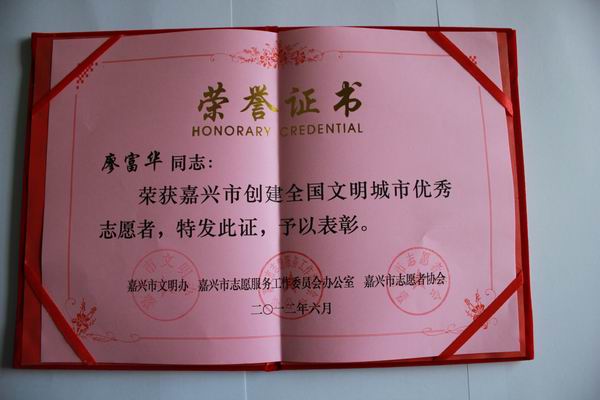 荣誉证书
HONORARY CREDENTIAL
廖富华 同志：
荣获嘉兴市创建全国文明城市优秀
志愿者，特发此证，予以表彰。
嘉兴市文明办 嘉兴市志愿服务工作委员会办公室 嘉兴市志愿者协会
二〇一二年六月